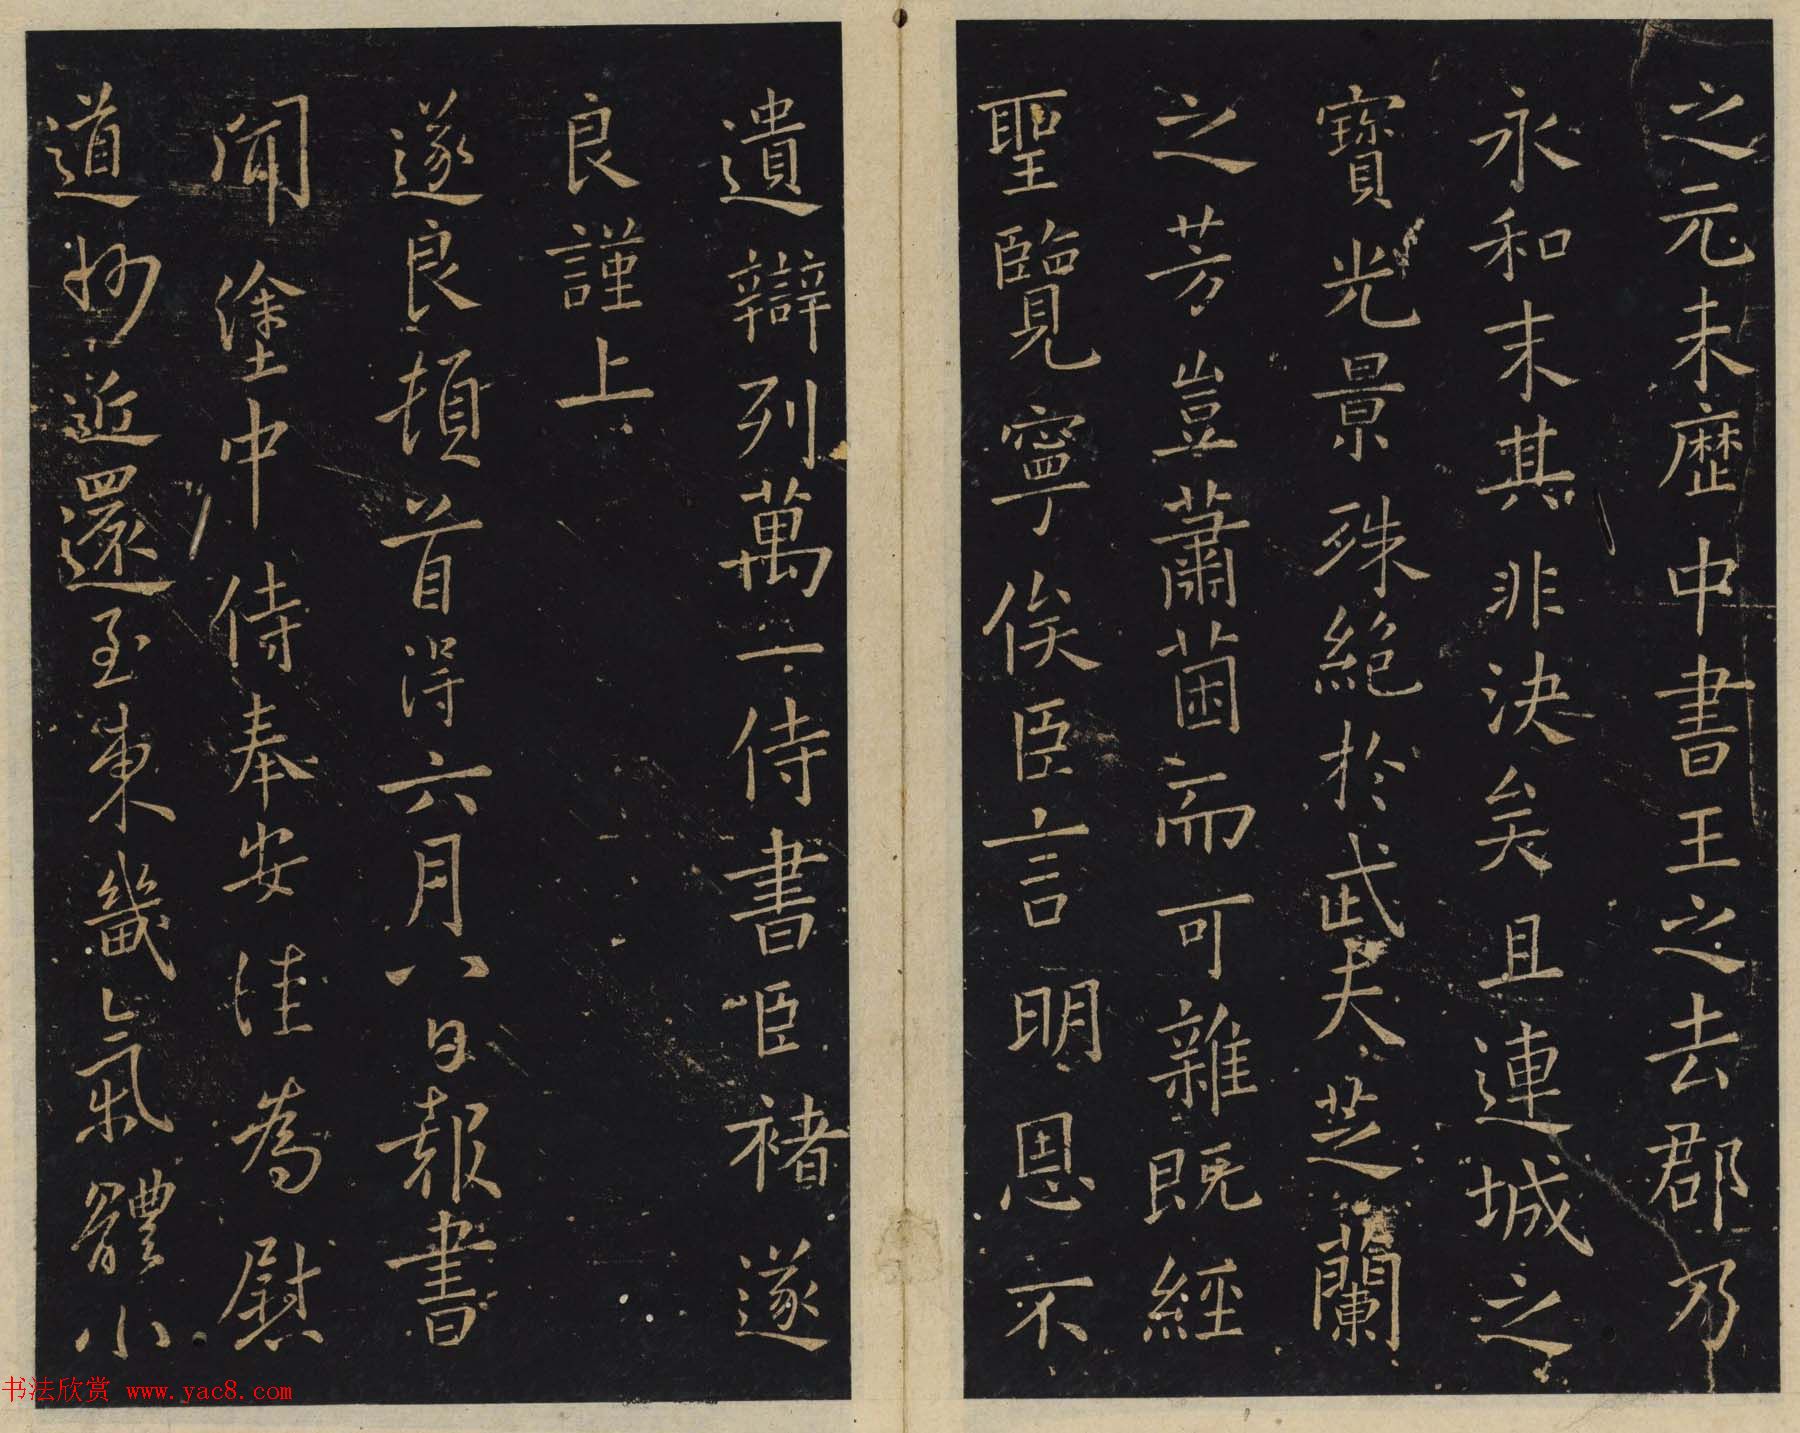 之元未歷中書王之去郡乃
永和末其非決矣且連城之
寶光景殊絕於武夫芝蘭
之芳豈蕭茵而可雜既經
聖覽寧俟臣言明恩不
遺辯列萬一侍書臣褚遂
良謹上
遂良頓首得六月八日報書
聞塗中侍奉安佳為慰
道妙近還至東畿氣體小
书法欣赏 www.yac8.com